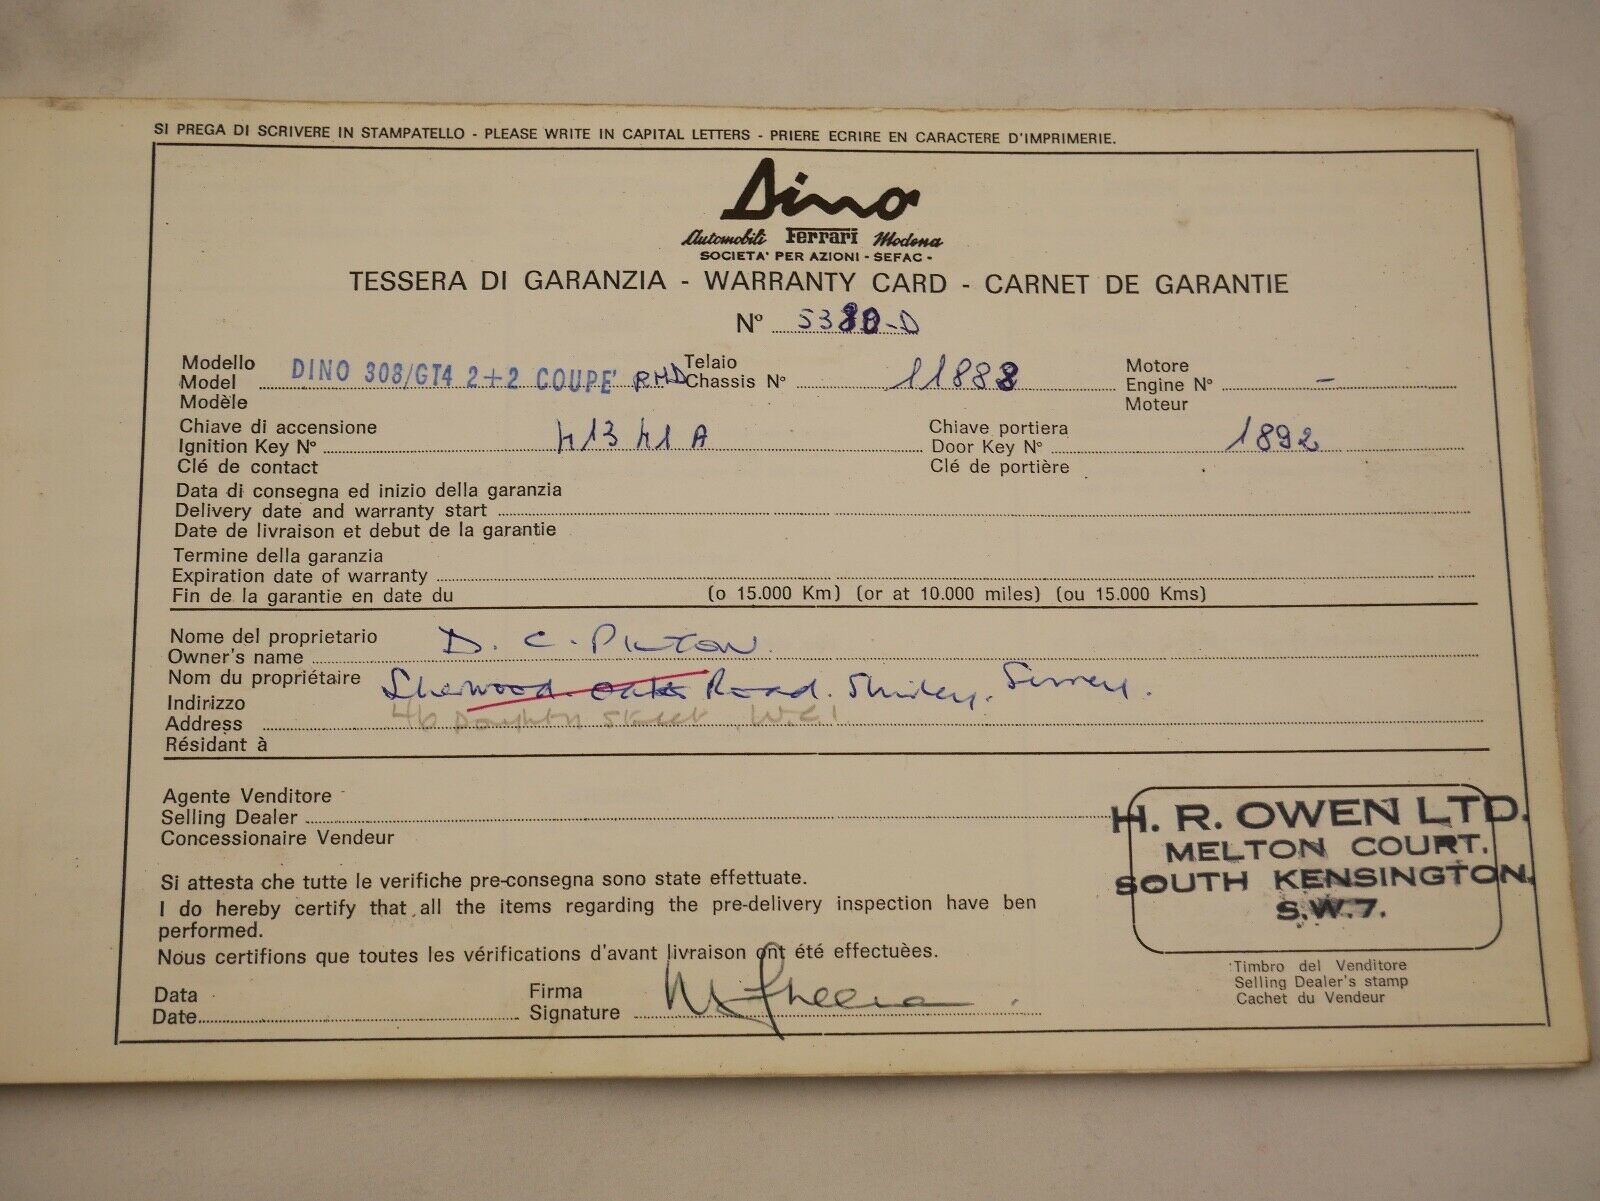 SI PREGA DI SCRIVERE IN STAMPATELLO - PLEASE WRITE IN CAPITAL LETTERS - PRIERE ECRIRE EN CARACTERE D'IMPRIMERIE.
Dino
Automobili Ferrari Modena
SOCIETA' PER AZIONI - SEFAC -
TESSERA DI GARANZIA - WARRANTY CARD - CARNET DE GARANTIE
N° 5380-D
Modello
Model DINO 308/GT4 2+2 COUPE' RHD
Modèle
Telaio
Chassis N° 11888
Motore
Engine N° -
Moteur
Chiave di accensione
Ignition Key N° 41341 A
Clé de contact
Chiave portiera
Door Key N° 1892
Clé de portière
Data di consegna ed inizio della garanzia
Delivery date and warranty start
Date de livraison et debut de la garantie
Termine della garanzia
Expiration date of warranty
Fin de la garantie en date du (o 15.000 Km) (or at 10.000 miles) (ou 15.000 Kms)
Nome del proprietario
Owner's name D. C.
Nom du propriétaire
Sherwood Oaks Road. Shirley. Surrey.
Indirizzo
Address 46 Doughty Street, W.C.1
Résidant à
Agente Venditore
Selling Dealer
Concessionaire Vendeur
H. R. OWEN LTD.
MELTON COURT.
SOUTH KENSINGTON.
S.W.7.
Si attesta che tutte le verifiche pre-consegna sono state effettuate.
I do hereby certify that all the items regarding the pre-delivery inspection have ben
performed.
Nous certifions que toutes les vérifications d'avant livraison ont été effectuèes.
Timbro del Venditore
Selling Dealer's stamp
Cachet du Vendeur
Data
Date
Firma
Signature